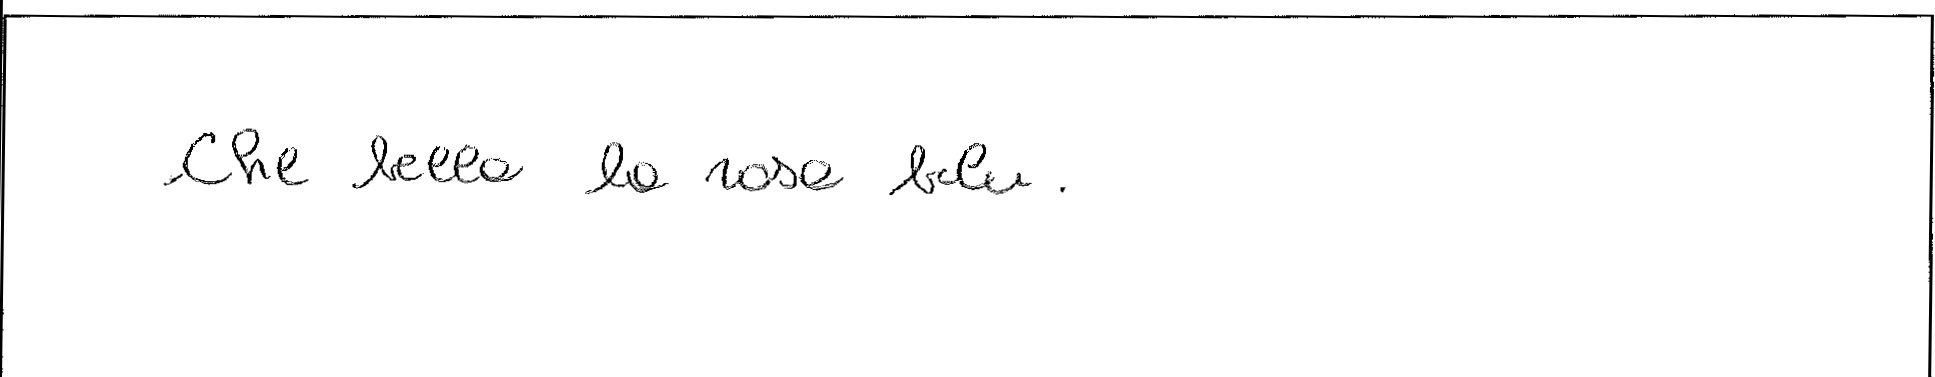 Che bella la rosa blu.